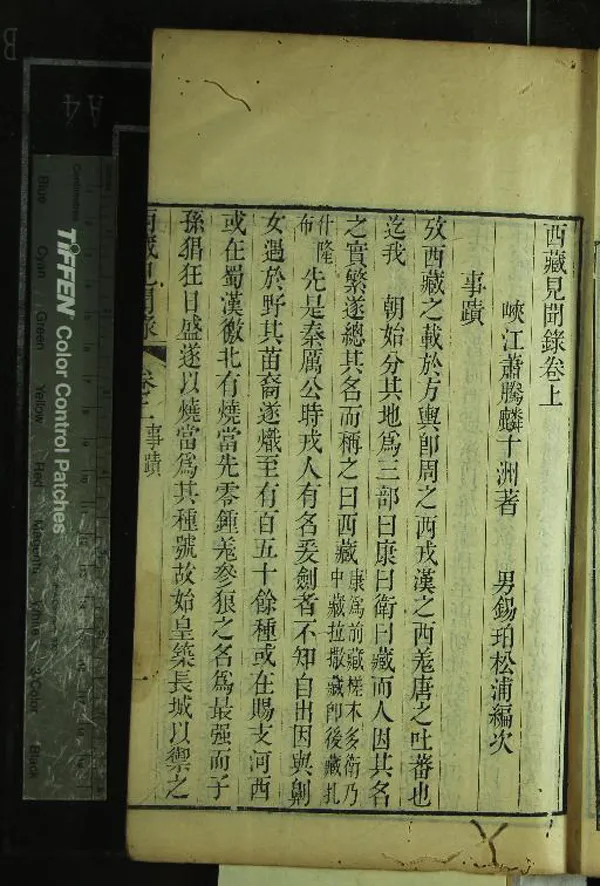 西藏見聞錄卷上
峽江蕭騰麟十洲著 男錫珀松浦編次
事蹟
攷西藏之載於方輿卽周之西戎漢之西羗唐之吐蕃也
迄我 朝始分其地爲三部曰康曰衛曰藏而人因其名
之實繁遂總其名而稱之曰西藏康爲前藏槎木多衛乃
中藏拉撒藏卽後藏扎
什隆
布 先是秦厲公時戎人有名爰劍者不知自出因與劓
女遇於野其苗裔遂熾至有百五十餘種或在賜支河西
或在蜀漢徼北有燒當先零鍾羗參狼之名爲最强而子
孫猖狂日盛遂以燒當爲其種號故始皇築長城以禦之
西藏見聞錄 卷上 事蹟
TIFFEN Color Control Patches
Centimetres
Blue
Cyan
Green
Yellow
Red
Magenta
White
3-Color
Black
A4
B